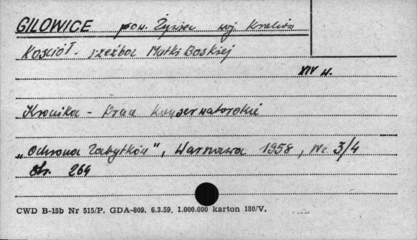 GILOWICE pow. Żywiec woj. Kraków
Kościół - rzeźba Matki Boskiej
XIV w.
Kronika - Prac konserwatorskie
„Ochrona Zabytków", Warszawa 1958, Nr 3/4
str. 264
CWD B-15b Nr 515/P. GDA-809. 6.3.59. 1.000.000 karton 180/V.